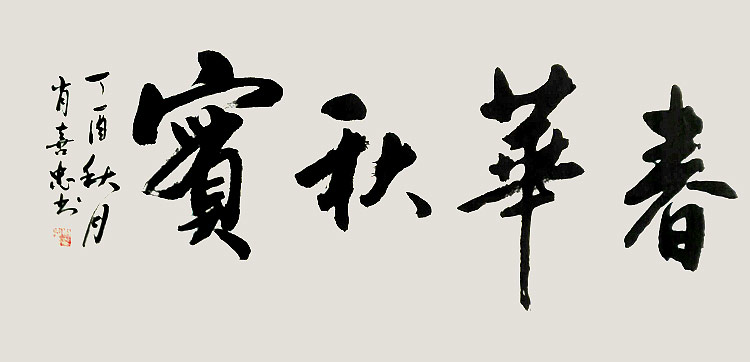 春華秋實
丁酉秋月
肖喜忠书